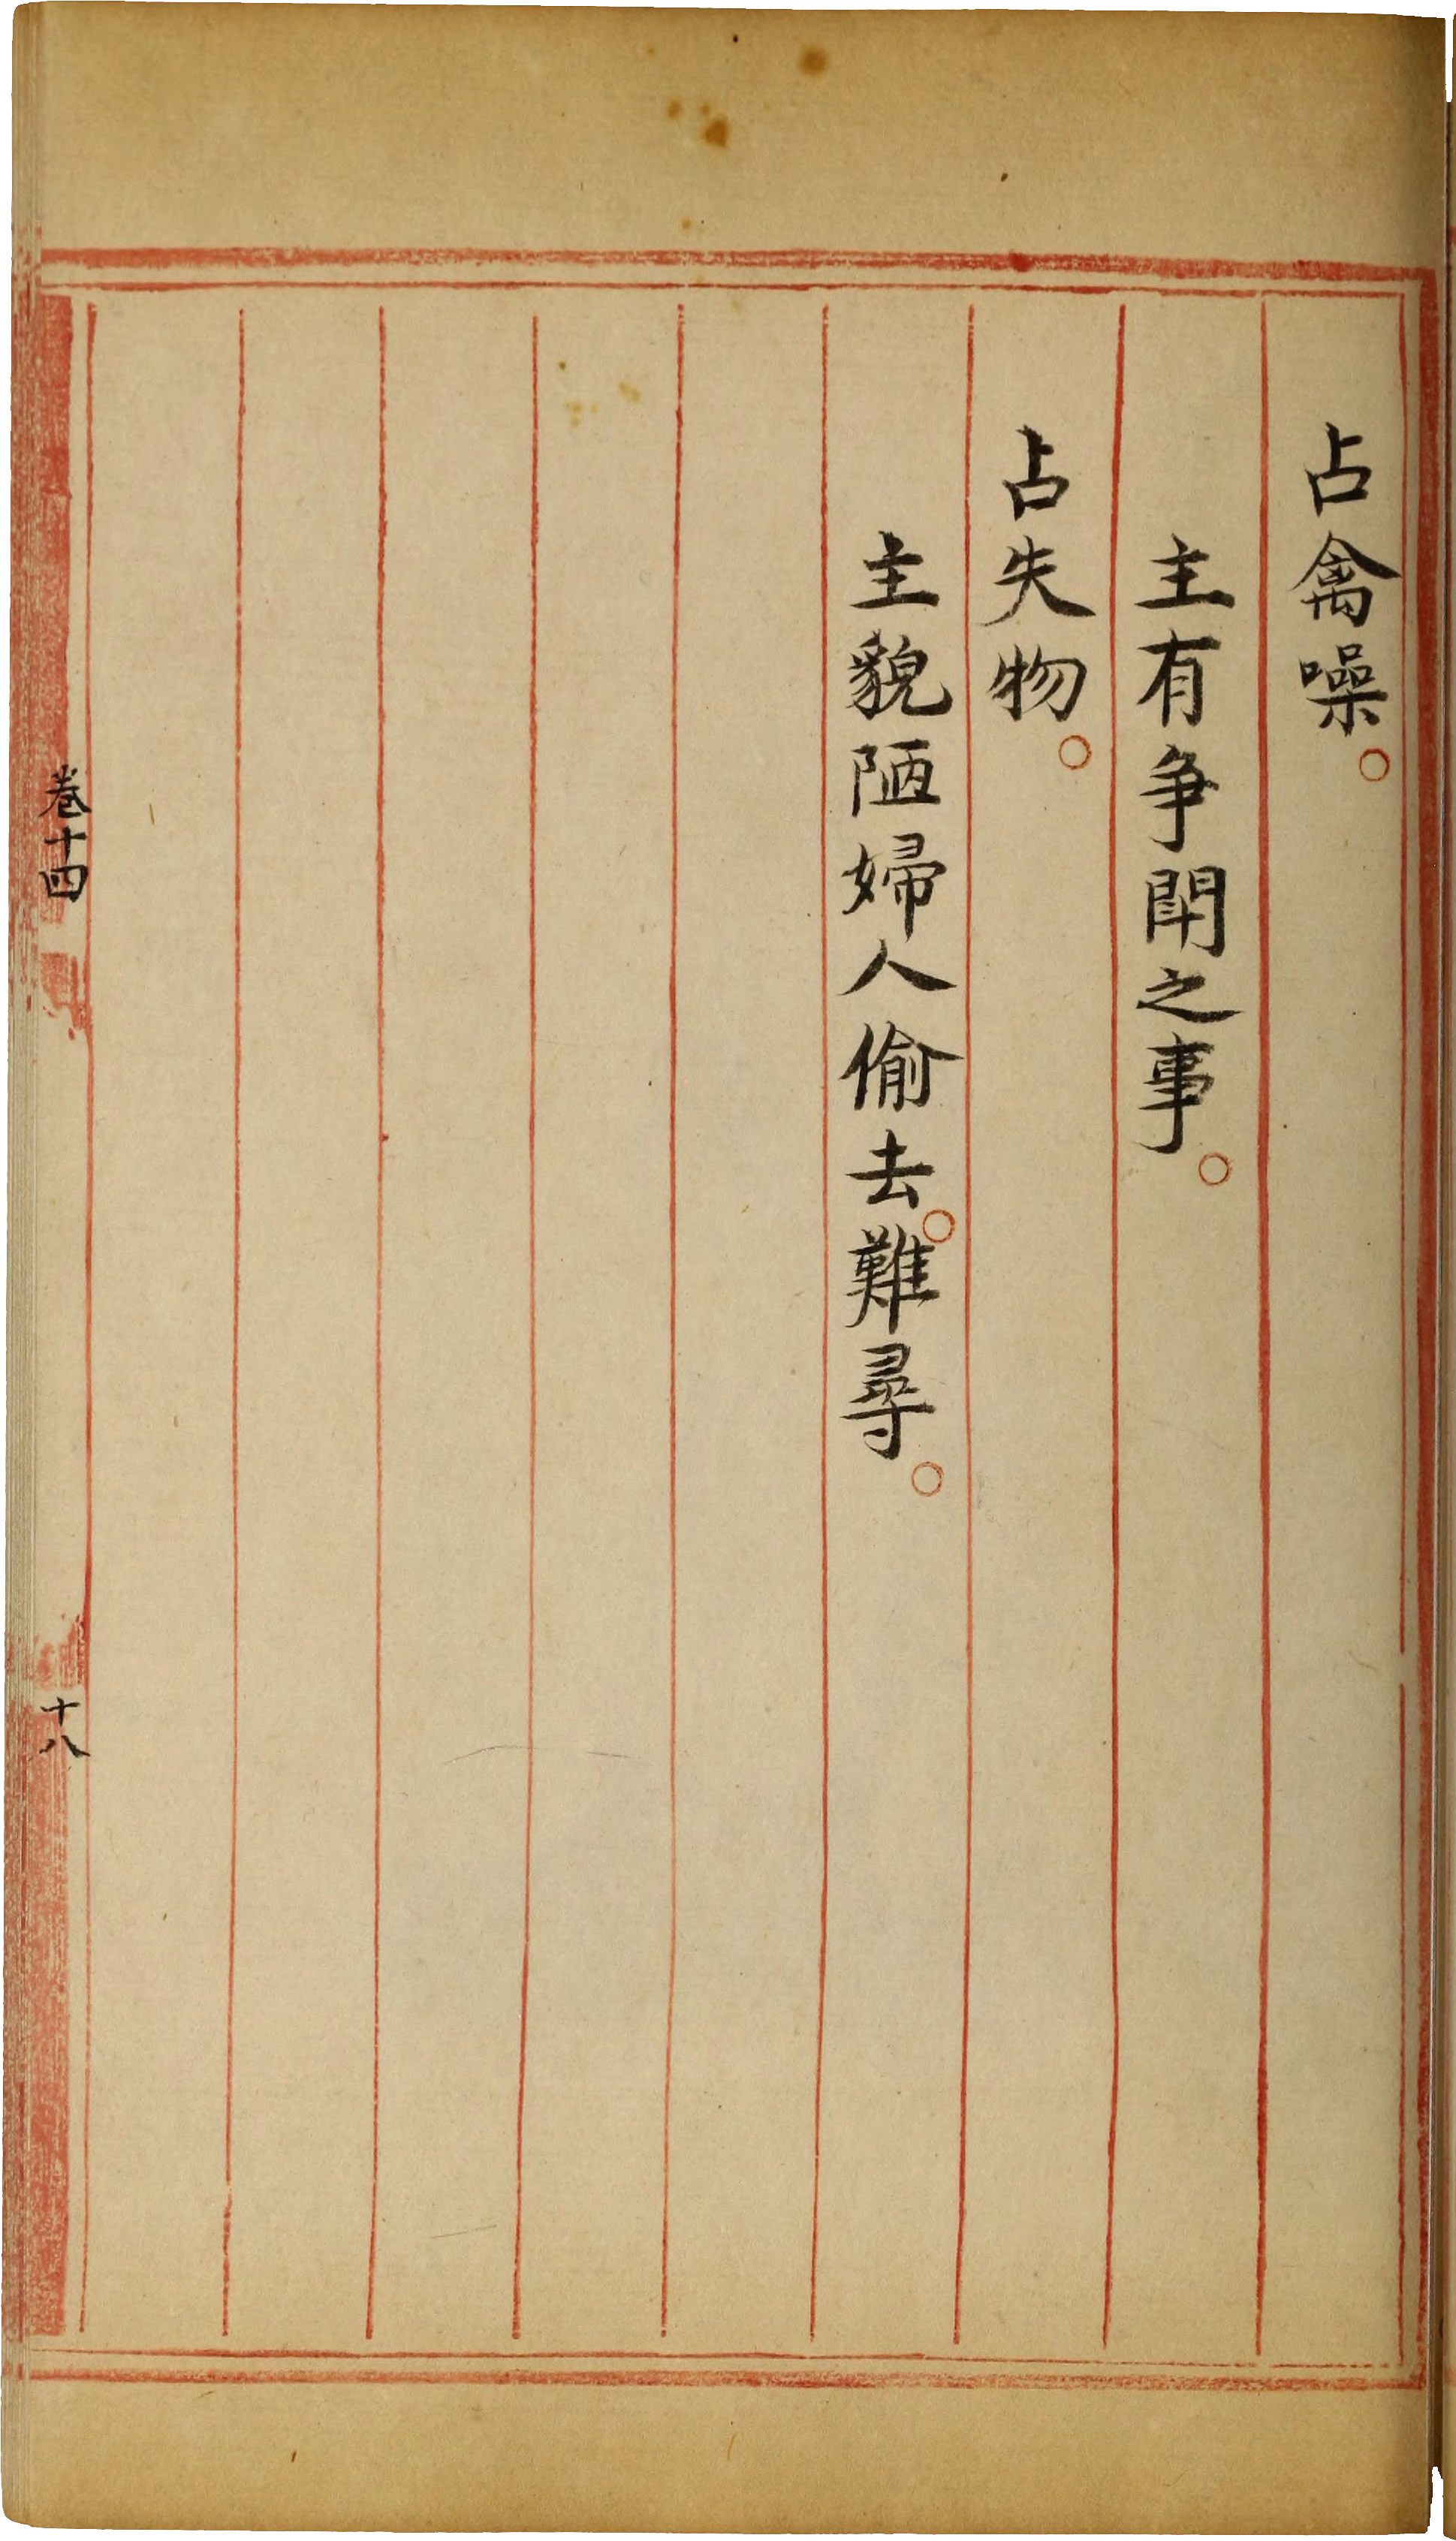 占禽噪。
主有爭鬪之事。
占失物。
主貌陋婦人偷去。難尋。
卷十四
十八